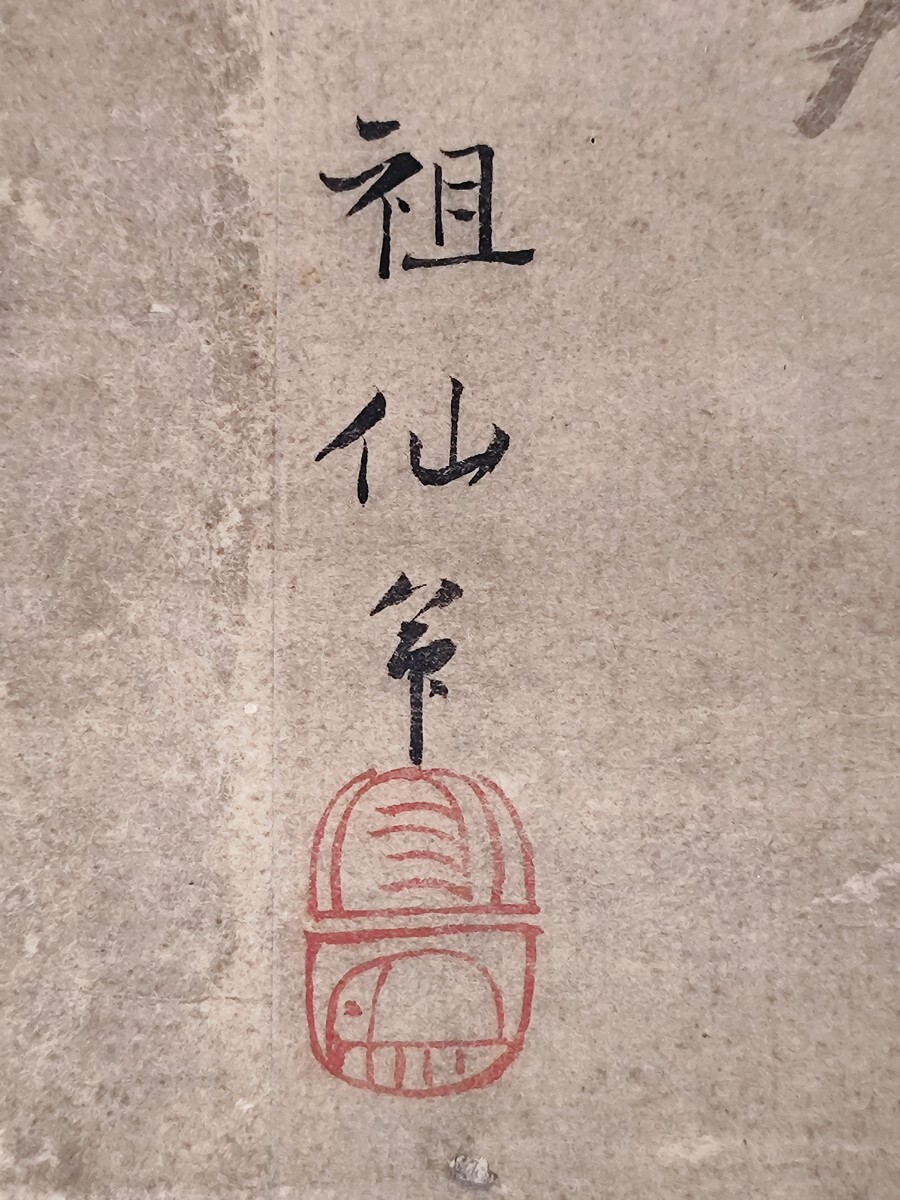 祖仙筆